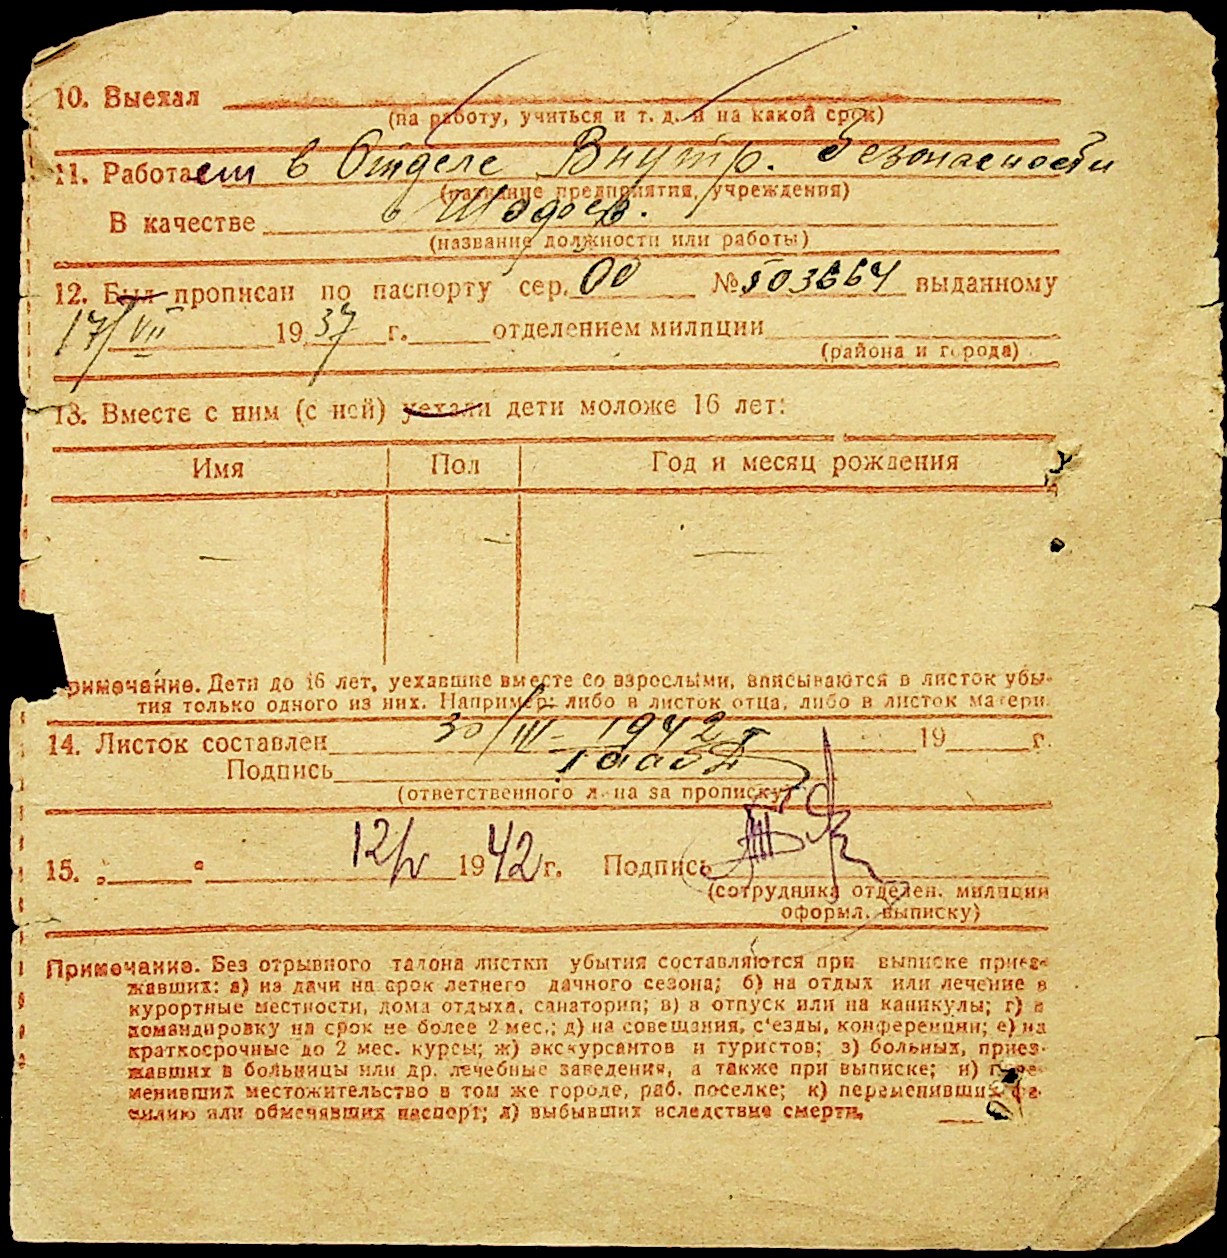 10. Выехал
(на работу, учиться и т. д. и на какой срок)
11. Работает в Отделе Внутр. Безопасности
(название предприятия, учреждения)
В качестве
(название должности или работы)
12. Был прописан по паспорту сер. 00 № 503664 выданному
17/VII 1937 г. отделением милиции
(района и города)
13. Вместе с ним (с ней) уехали дети моложе 16 лет:
Имя Пол Год и месяц рождения
— — —
римечание. Дети до 16 лет, уехавшие вместе со взрослыми, вписываются в листок убы-
тия только одного из них. Например: либо в листок отца, либо в листок матери.
14. Листок составлен 30/III - 1942 г 19 г.
Подпись
(ответственного лица за прописку)
15. „ “ 12/V 1942 г. Подпись
(сотрудника отделен. милиции
оформл. выписку)
Примечание. Без отрывного талона листки убытия составляются при выписке приез-
жавших: а) на дачи на срок летнего дачного сезона; б) на отдых или лечение в
курортные местности, дома отдыха, санатории; в) в отпуск или на каникулы; г) в
командировку на срок не более 2 мес.; д) на совещания, с'езды, конференции; е) на
краткосрочные до 2 мес. курсы; ж) экскурсантов и туристов; з) больных, приез-
жавших в больницы или др. лечебные заведения, а также при выписке; и) пере-
менивших местожительство в том же городе, раб. поселке; к) переменивших фа-
милию или обменявших паспорт; л) выбывших вследствие смерти.